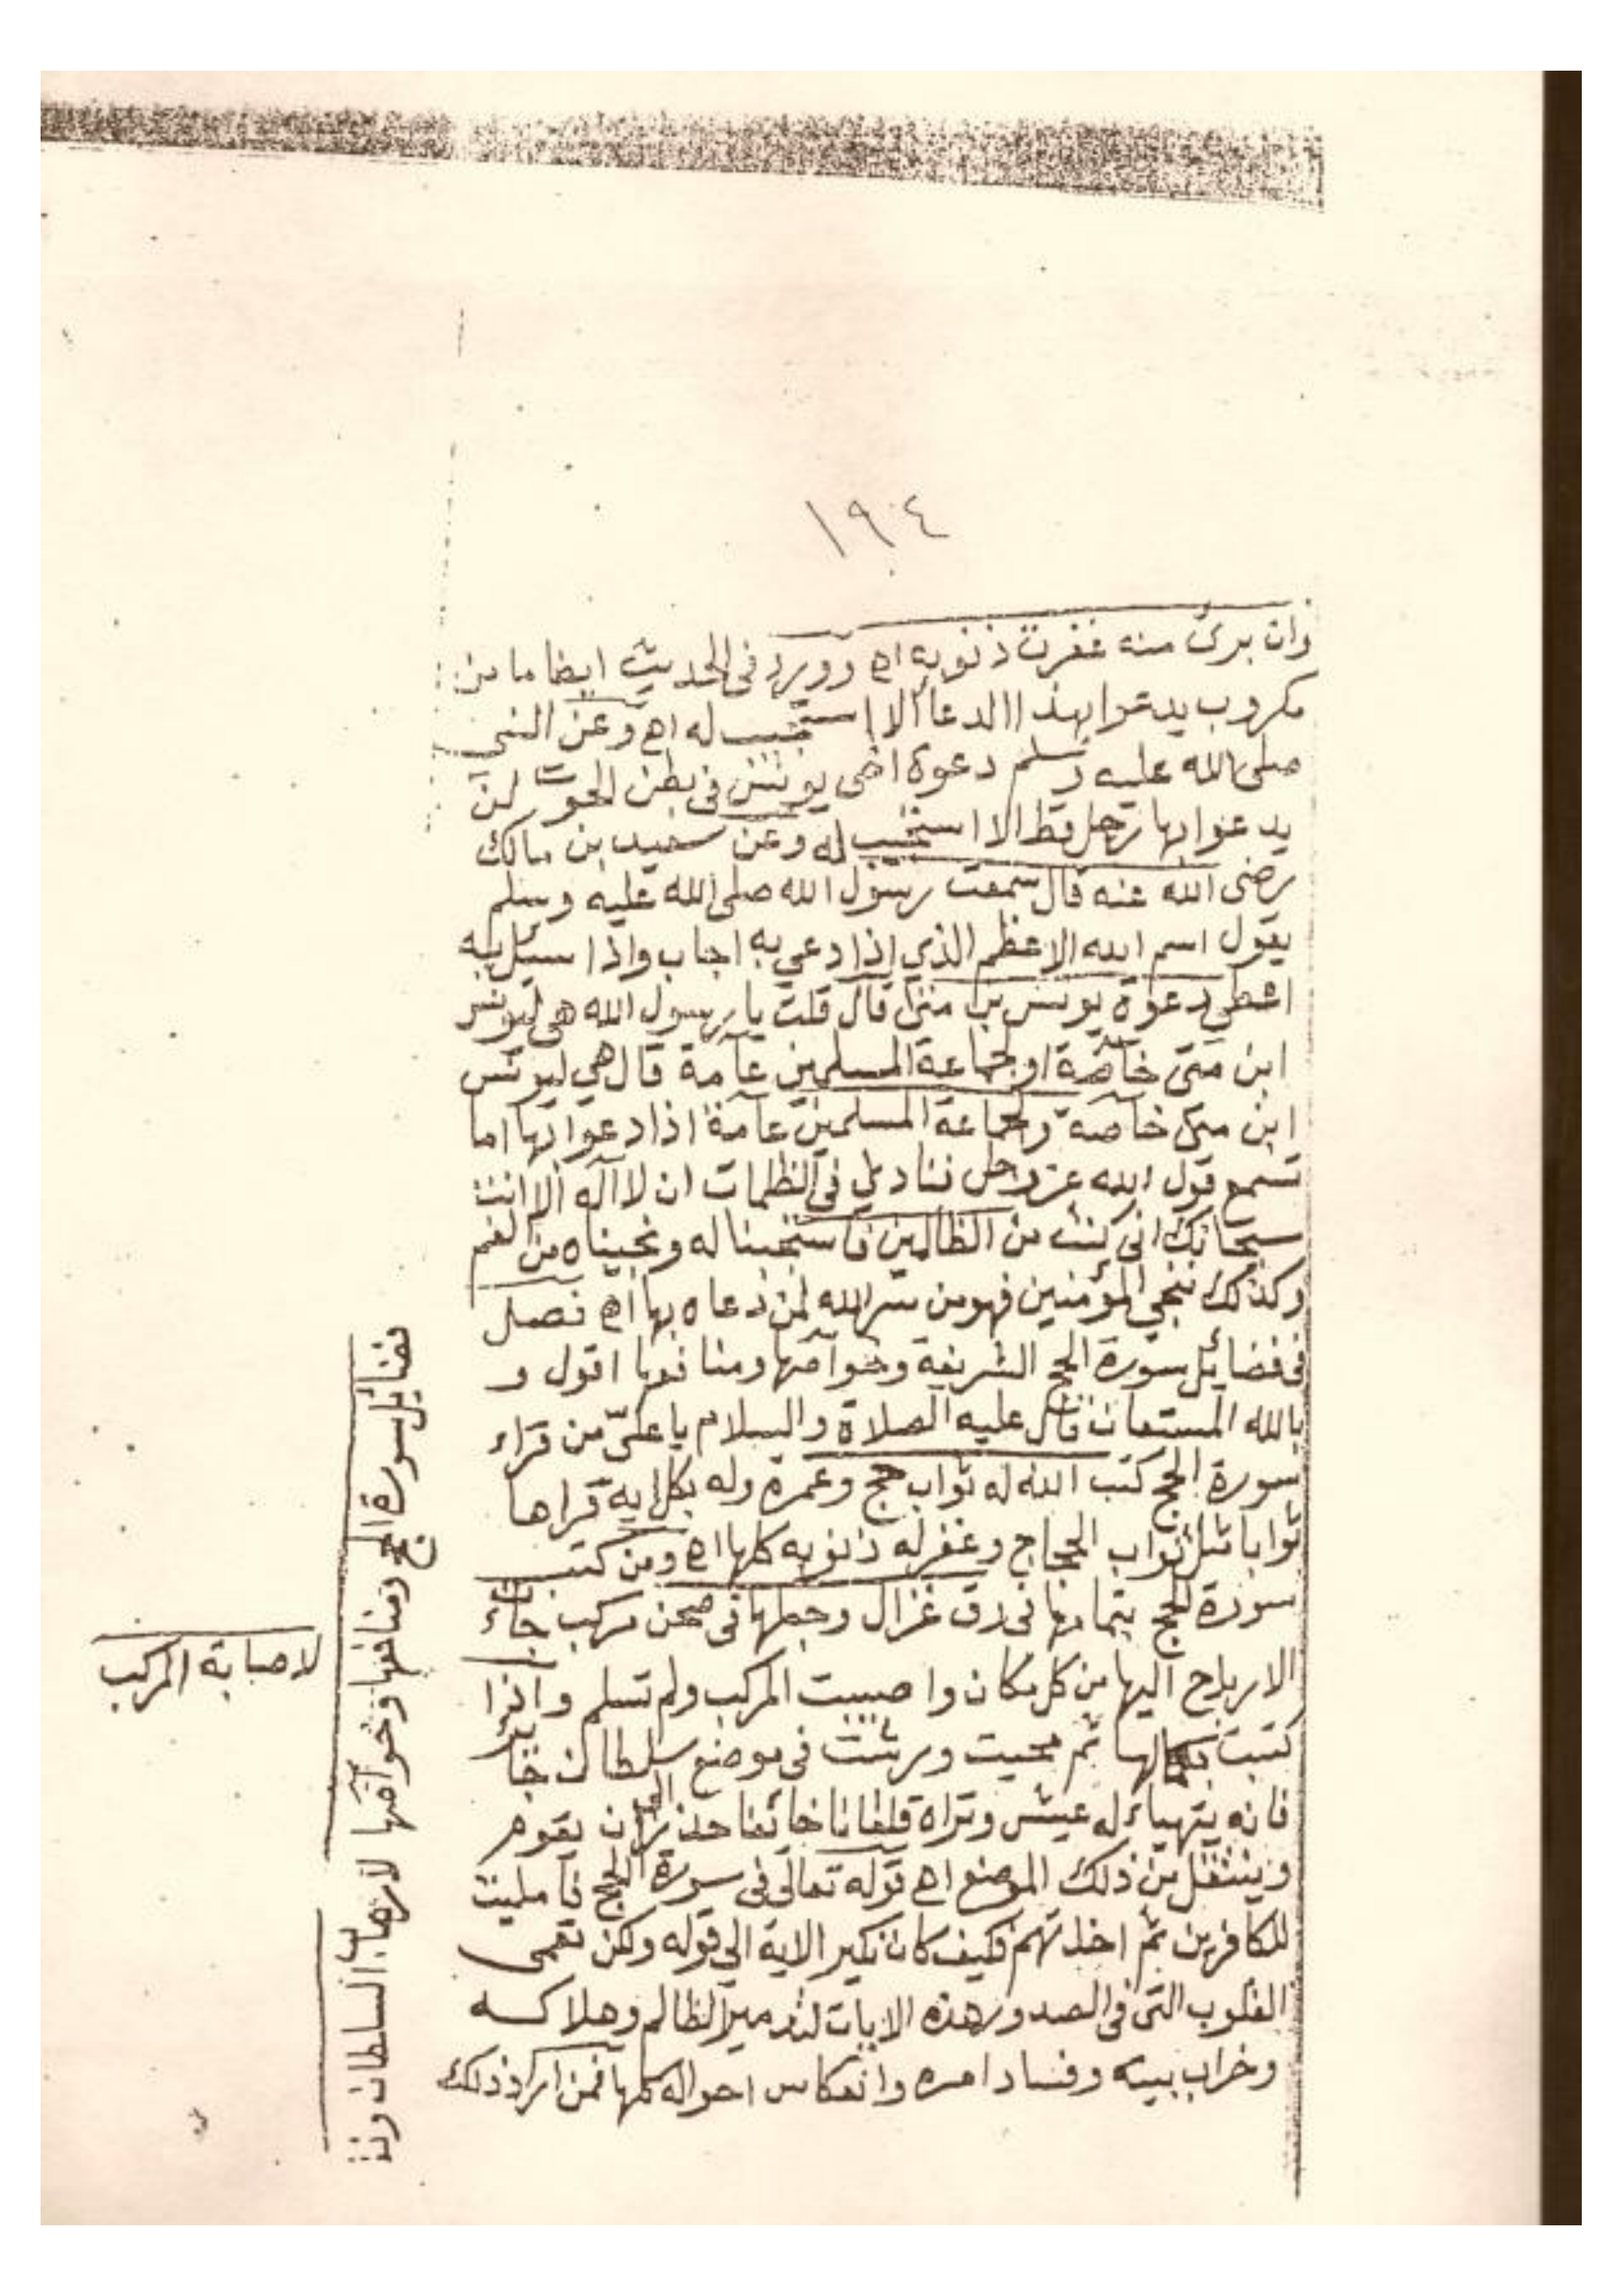 ١٩٤
وان برئ منه غفرت ذنوبه اه وورد في الحديث ايضا ما من
مكروب يدعوا بهذا الدعأ الا استجيب له اه وعن النبي
صلى الله عليه وسلم دعوة اخي يونس في بطن الحوت لن
يدعوا بها رجل قط الا استجيب له وعن سعيد بن مالك
رضى الله عنه قال سمعت رسول الله صلى الله عليه وسلم
يقول اسم الله الاعظم الذي اذا دعي به اجاب واذا سئل به
اعطي دعوة يونس بن متى قال قلت يا رسول الله هي ليونس
ابن متى خآصة او لجماعة المسلمين عآمة قال هي ليونس
ابن متى خآصة ولجماعة المسلمين عآمة اذا دعوا بها اما
تسمع قول الله عز وجل فنادى في الظلمات ان لا اله الا انت
سبحانك انى كنت من الظالمين فاستجبنا له ونجيناه من الغم
وكذلك ننجي المؤمنين فهو من سر الله لمن دعاه بها اه فصل
في فضائل سورة الحج الشريفة وخوآصها ومنافعها اقول و
بالله المستعان قال عليه الصلاة والسلام يا علىّ من قراء
سورة الحج كتب الله له ثواب حج وعمرة وله بكل اية قراها
ثوابا مثل ثواب الحجاج وغفر له ذنوبه كلها اه ومن كتب
سورة الحج بتمامها في رق غزال وجعلها في صحن مركب جائت
الارياح اليها من كل مكان واصيبت المركب ولم تسلم واذا
كتبت بكمالها ثم محيت ورشت في موضع سلطان جائر
فانه يتهياء له عيش وتراه قلقانا خائفا حذرا الى ان يقوم
وينتقل من ذلك الموضع اه قوله تعالى في سورة الحج فامليت
للكافرين ثم اخذتهم فكيف كان نكير الاية الى قوله ولكن تعمى
القلوب التى في الصدور هذه الايات لتدمير الظالم وهلاكه
وخراب بيته وفساد امره وانعكاس احواله كلها فمن اراد ذلك
فضائل سورة الحج ومنافعها وخوآصها لارهاب السلطان
لاصابة المركب